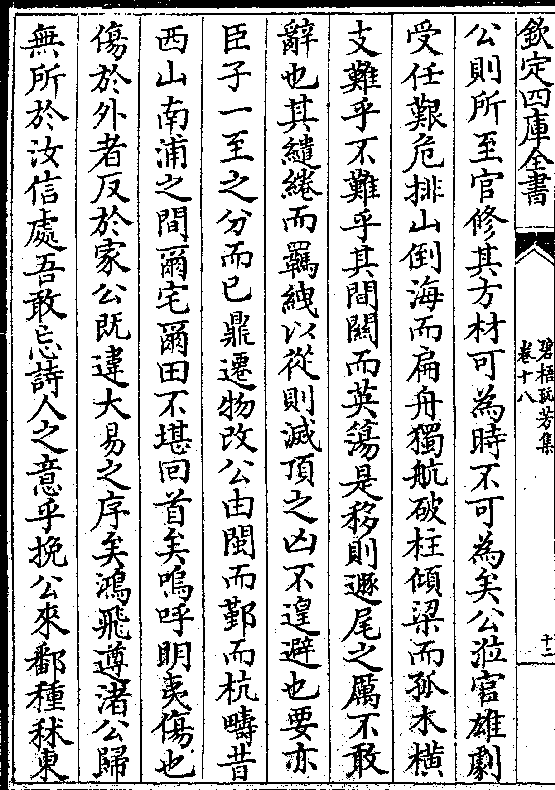 欽定四庫全書
碧梧玩芳集
卷十八
十三
公則所至官修其方材可為時不可為矣公涖官雄劇
受任艱危排山倒海而扁舟獨航破柱傾梁而孤木橫
支難乎不難乎其間關而英蕩是移則遯尾之厲不敢
辭也其繾綣而羈絏以從則滅頂之凶不遑避也要亦
臣子一至之分而已鼎遷物改公由閩而鄞而杭疇昔
西山南浦之間爾宅爾田不堪回首矣嗚呼明夷傷也
傷於外者反於家公既違大易之序矣鴻飛遵渚公歸
無所於汝信處吾敢忘詩人之意乎挽公來鄱種秫東